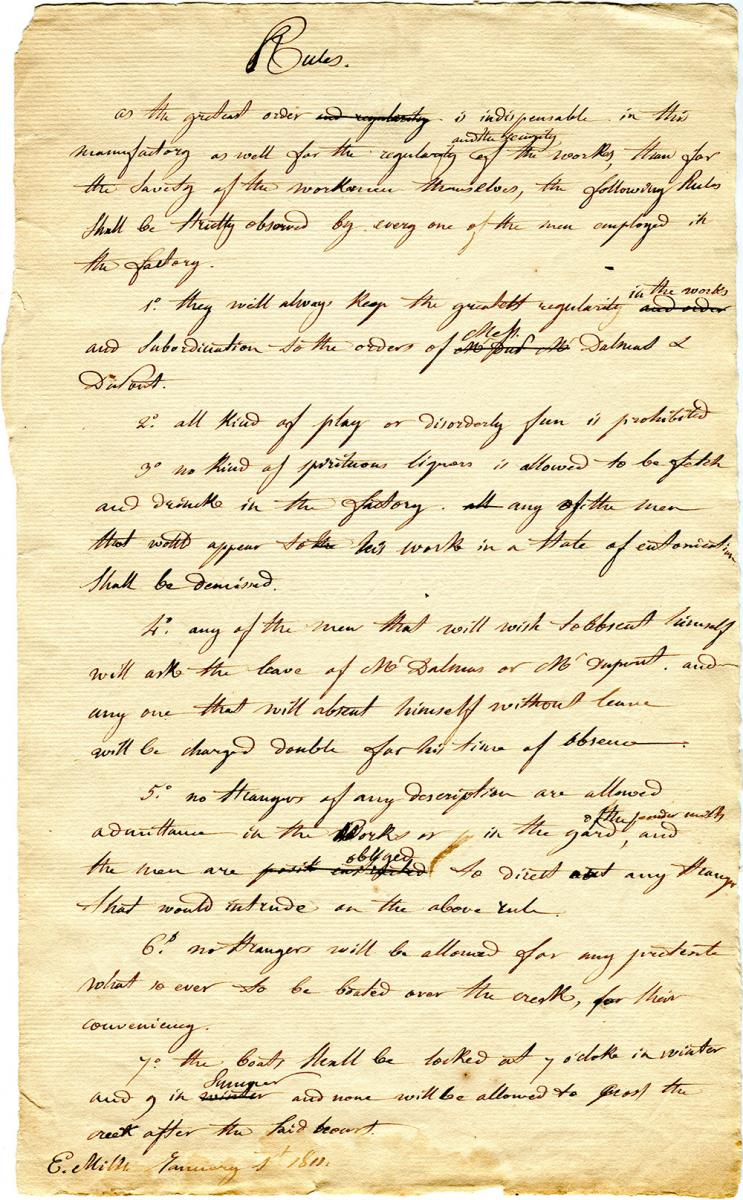 Rules.
as the gretest order and regularity is indispensable in this
and the security
manufactory as well for the regularity of the works, than for
the savety of the workmen themselves, the following Rules
Shall be Strictly observed by every one of the men employed in
the factory.
in the works
1º. they will always keep the greatest regularity and order
Mess.
and Subordination to the orders of Dalmas &
DuPont.
2º. all kind of play or disorderly fun is prohibited
3º no kind of spirituous liquors is allowed to be fetch
and drinck in the factory. all any of the men
that would appear to the his work in a State of entoxication
Shall be demissed.
4º. any of the men that will wish to absent himself
will ask the leave of Mr Dalmas or Mr Dupont. and
any one that will absent himself without leave
will be charged double for his time of absence.
5º. no Strangers of any description are allowed
of the powder mills
admittance in the Works or in the yard, and
obliged
the men are to direct out any Stranger
that would intrude on the above rule.
6º no Strangers will be allowed for any pretente
what so ever to be boated over the creek, for their
conveniency.
7º. the boats Shall be locked at 7 o'cloke in winter
Summer
and 9 in winter and none will be allowed to cross the
creek after the Said hours.
E. Mills January 1st 1811.